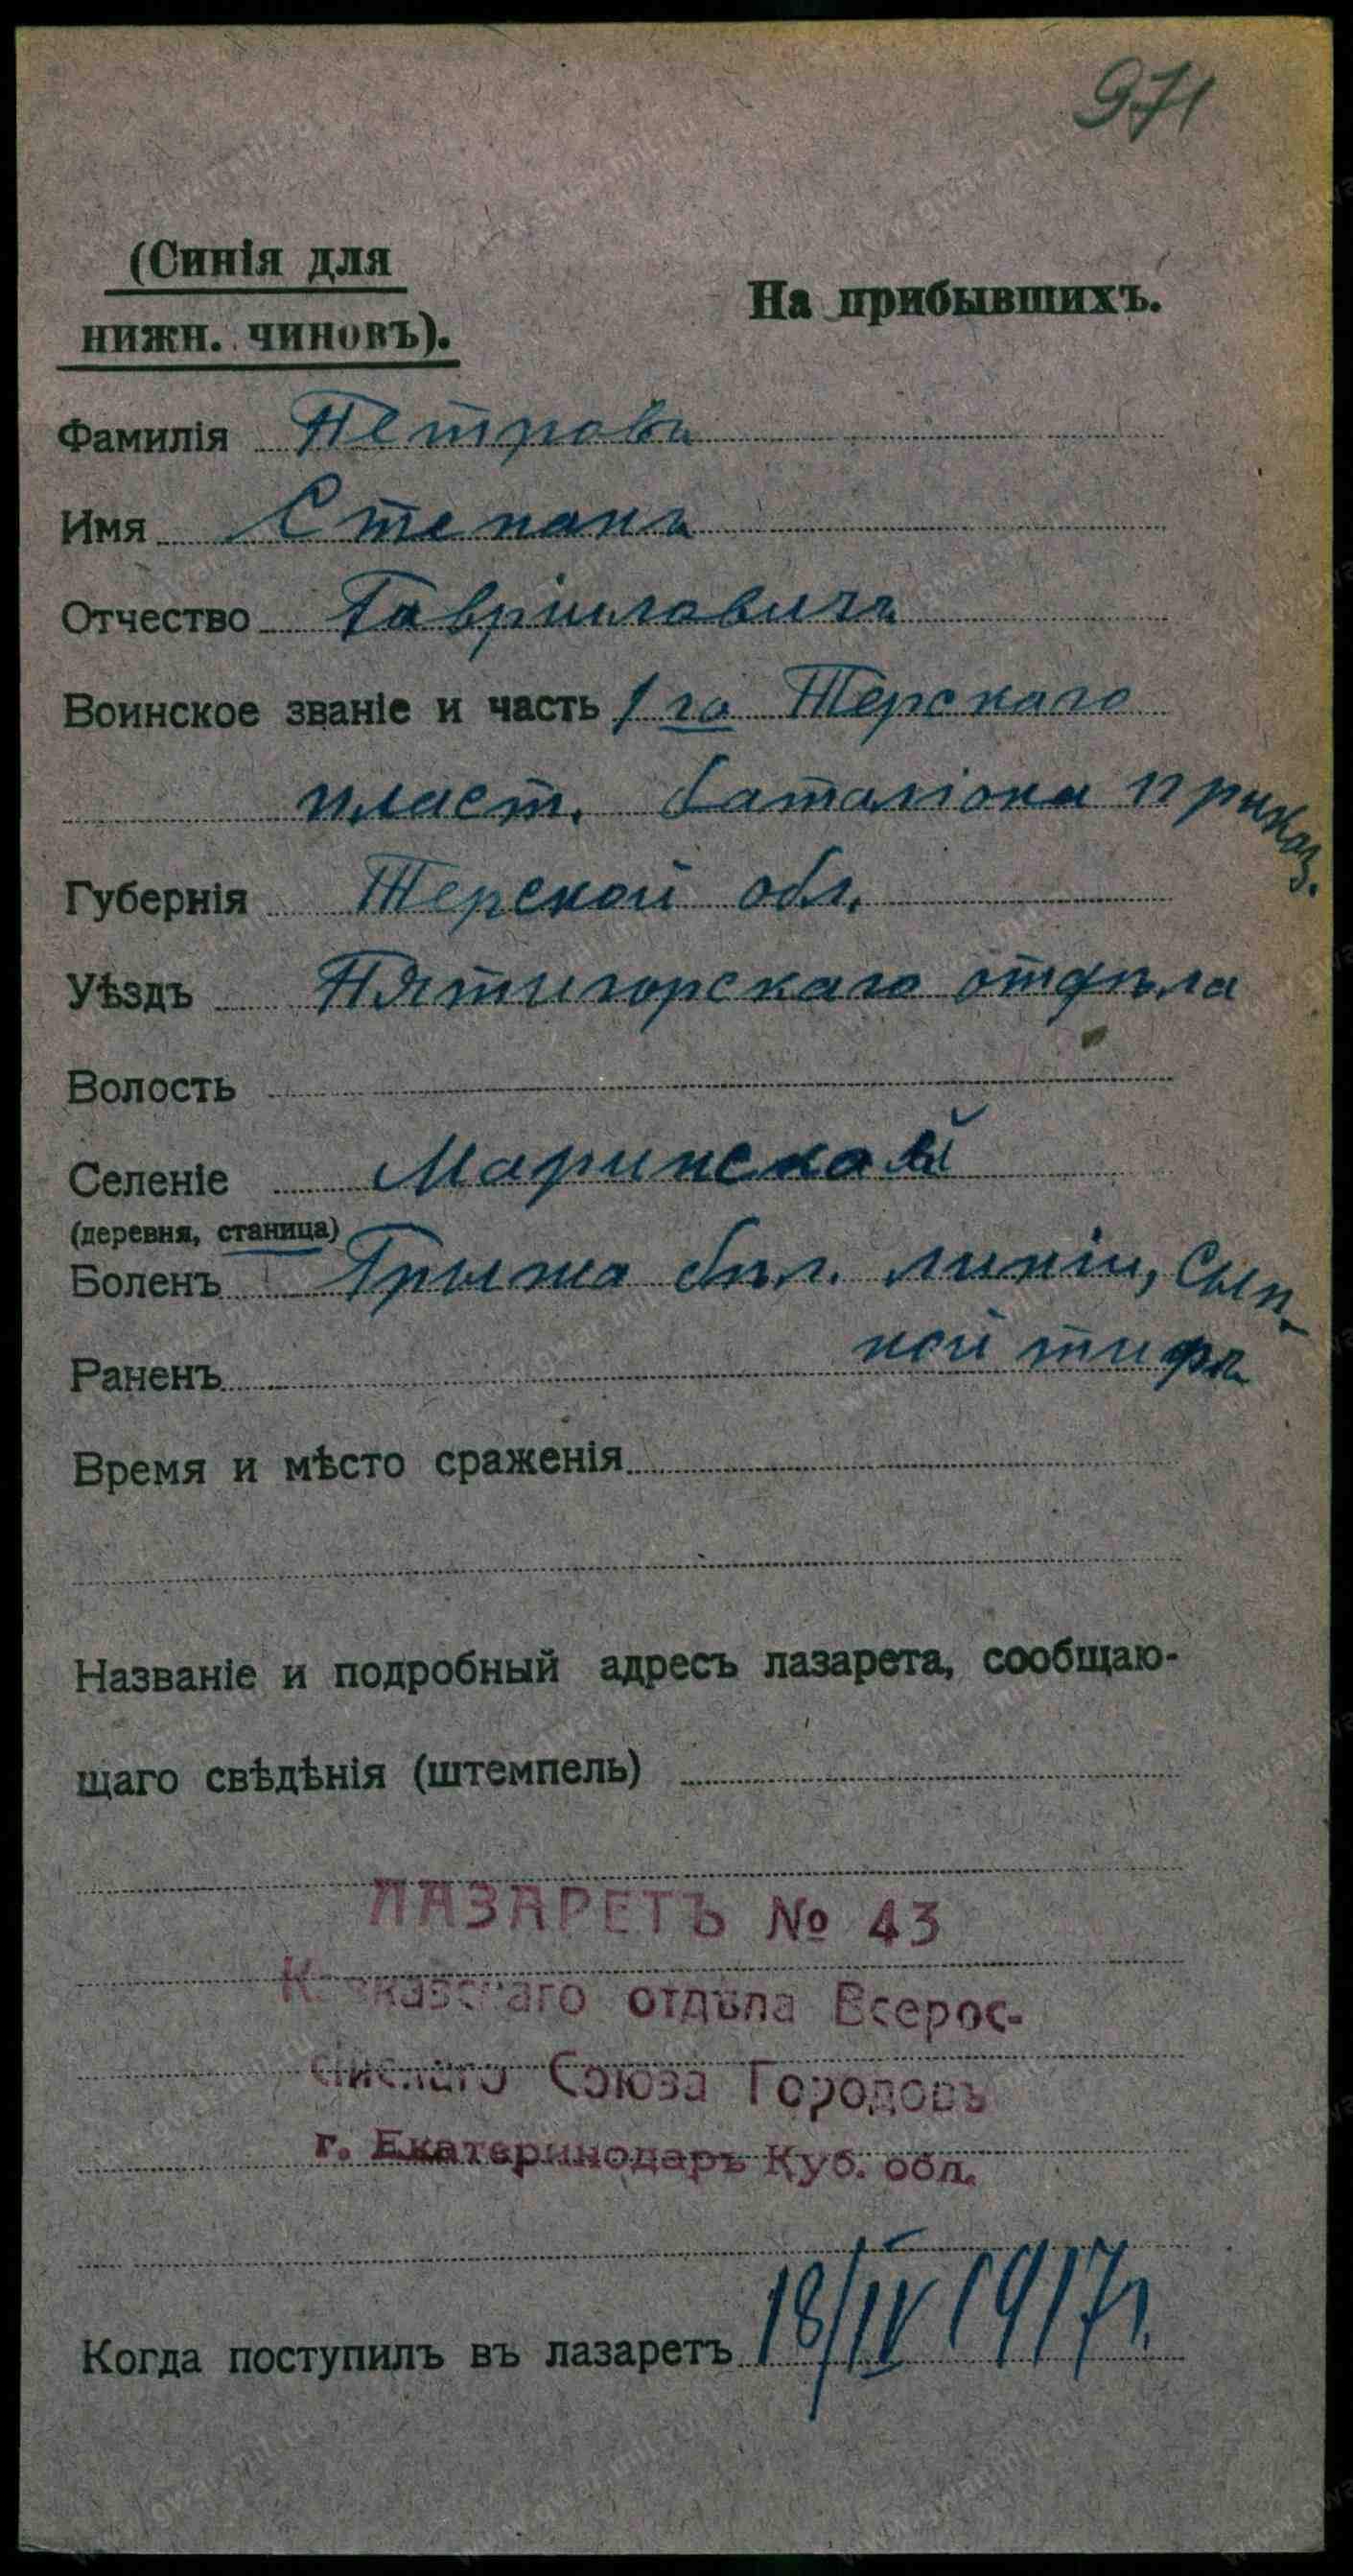 971
(Синія для
нижн. чиновъ).
На прибывшихъ.
Фамилія Петровъ
Имя Степанъ
Отчество Гавріиловичъ
Воинское званіе и часть 1го Терскаго
пласт. баталіона приказ.
Губернія Терской обл.
Уѣздъ Пятигорскаго отдѣла
Волость
Селеніе Маринской
(деревня, станица)
Боленъ Грыжа бѣл. линіи, Сып-
ной тифъ
Раненъ
Время и мѣсто сраженія
Названіе и подробный адресъ лазарета, сообщаю-
щаго свѣдѣнія (штемпель)
ЛАЗАРЕТЪ № 43
Кавказскаго отдѣла Всерос-
сійскаго Союза Городовъ
г. Екатеринодаръ Куб. обл.
Когда поступилъ въ лазаретъ 18/IV 1917г.